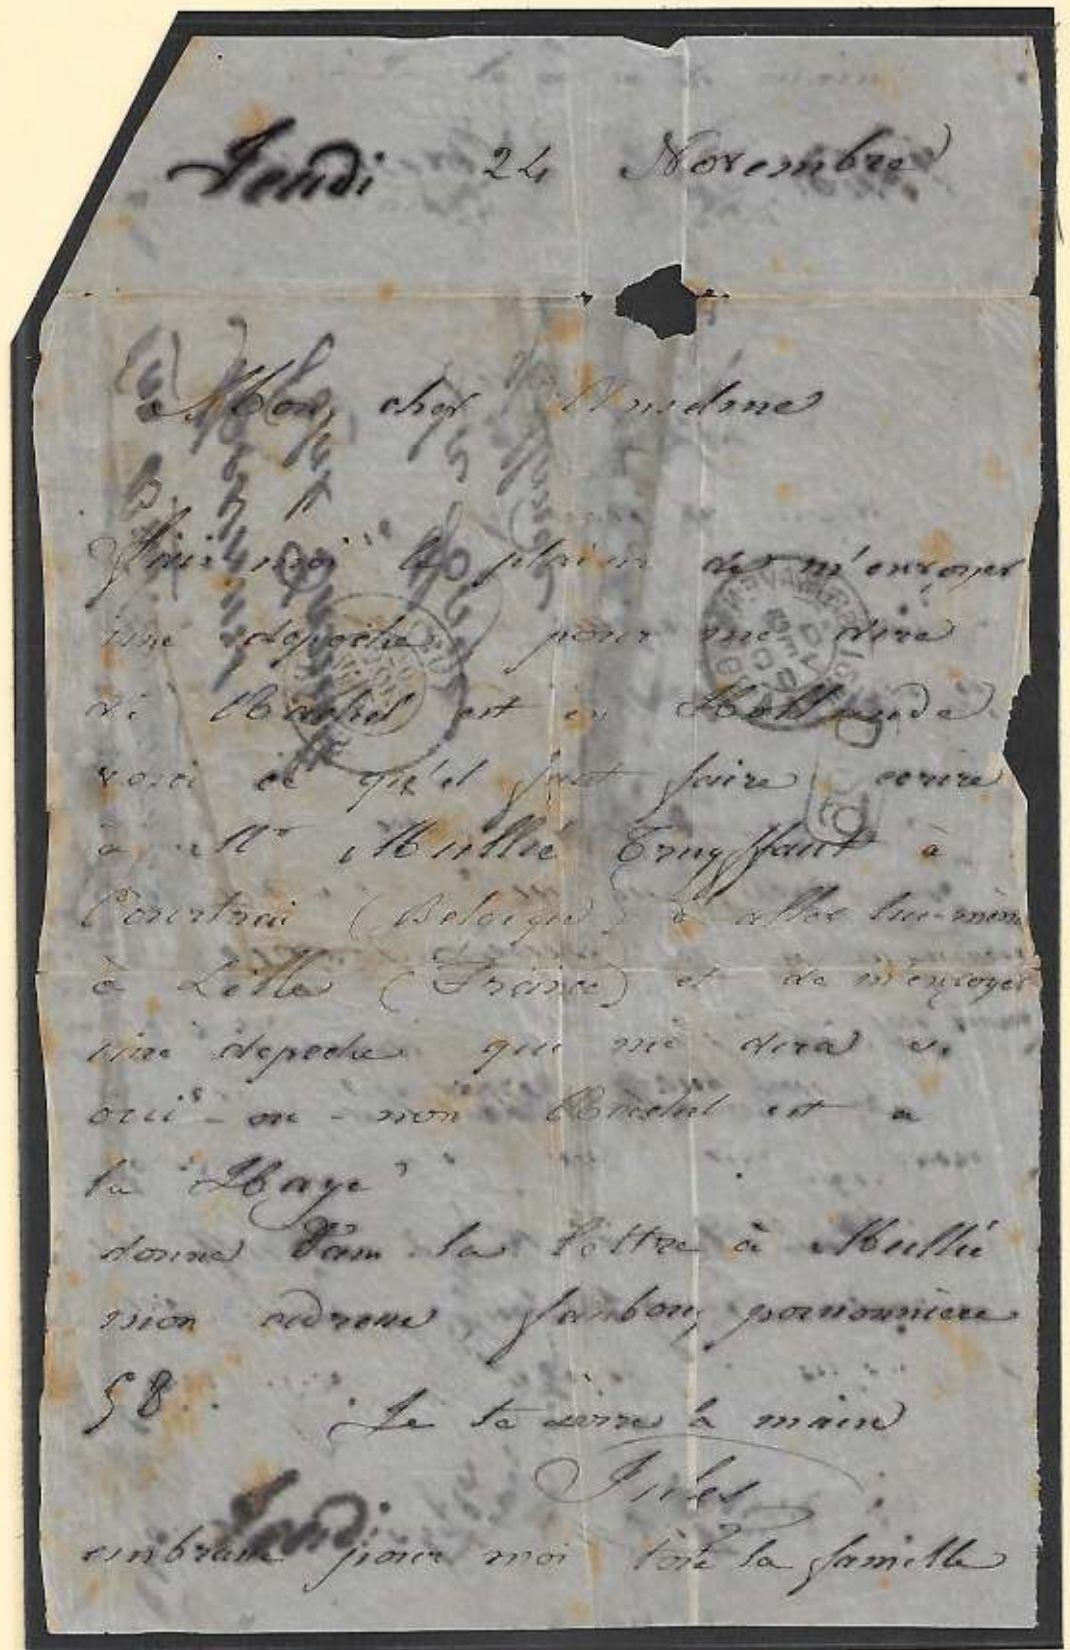 Jeudi 24 Novembre
Mon cher Anselme
fais moi le plaisir de m'envoyer
une depeche pour me dire
si Rachel est en Hollande
voici ce qu'il faut faire ecrire
à Mr Meillié Truyffaut à
Courtrai (Belgique) d'aller lui-même
à Lille (France) et de m'envoyer
une depeche qui me dira si
oui - ou - non Rachel est a
la Haye
donne dans la lettre à Meillié
mon adresse faubourg poissonnière
58. Je te serre la main
Jules
Jeudi
embrasse pour moi toute la famille